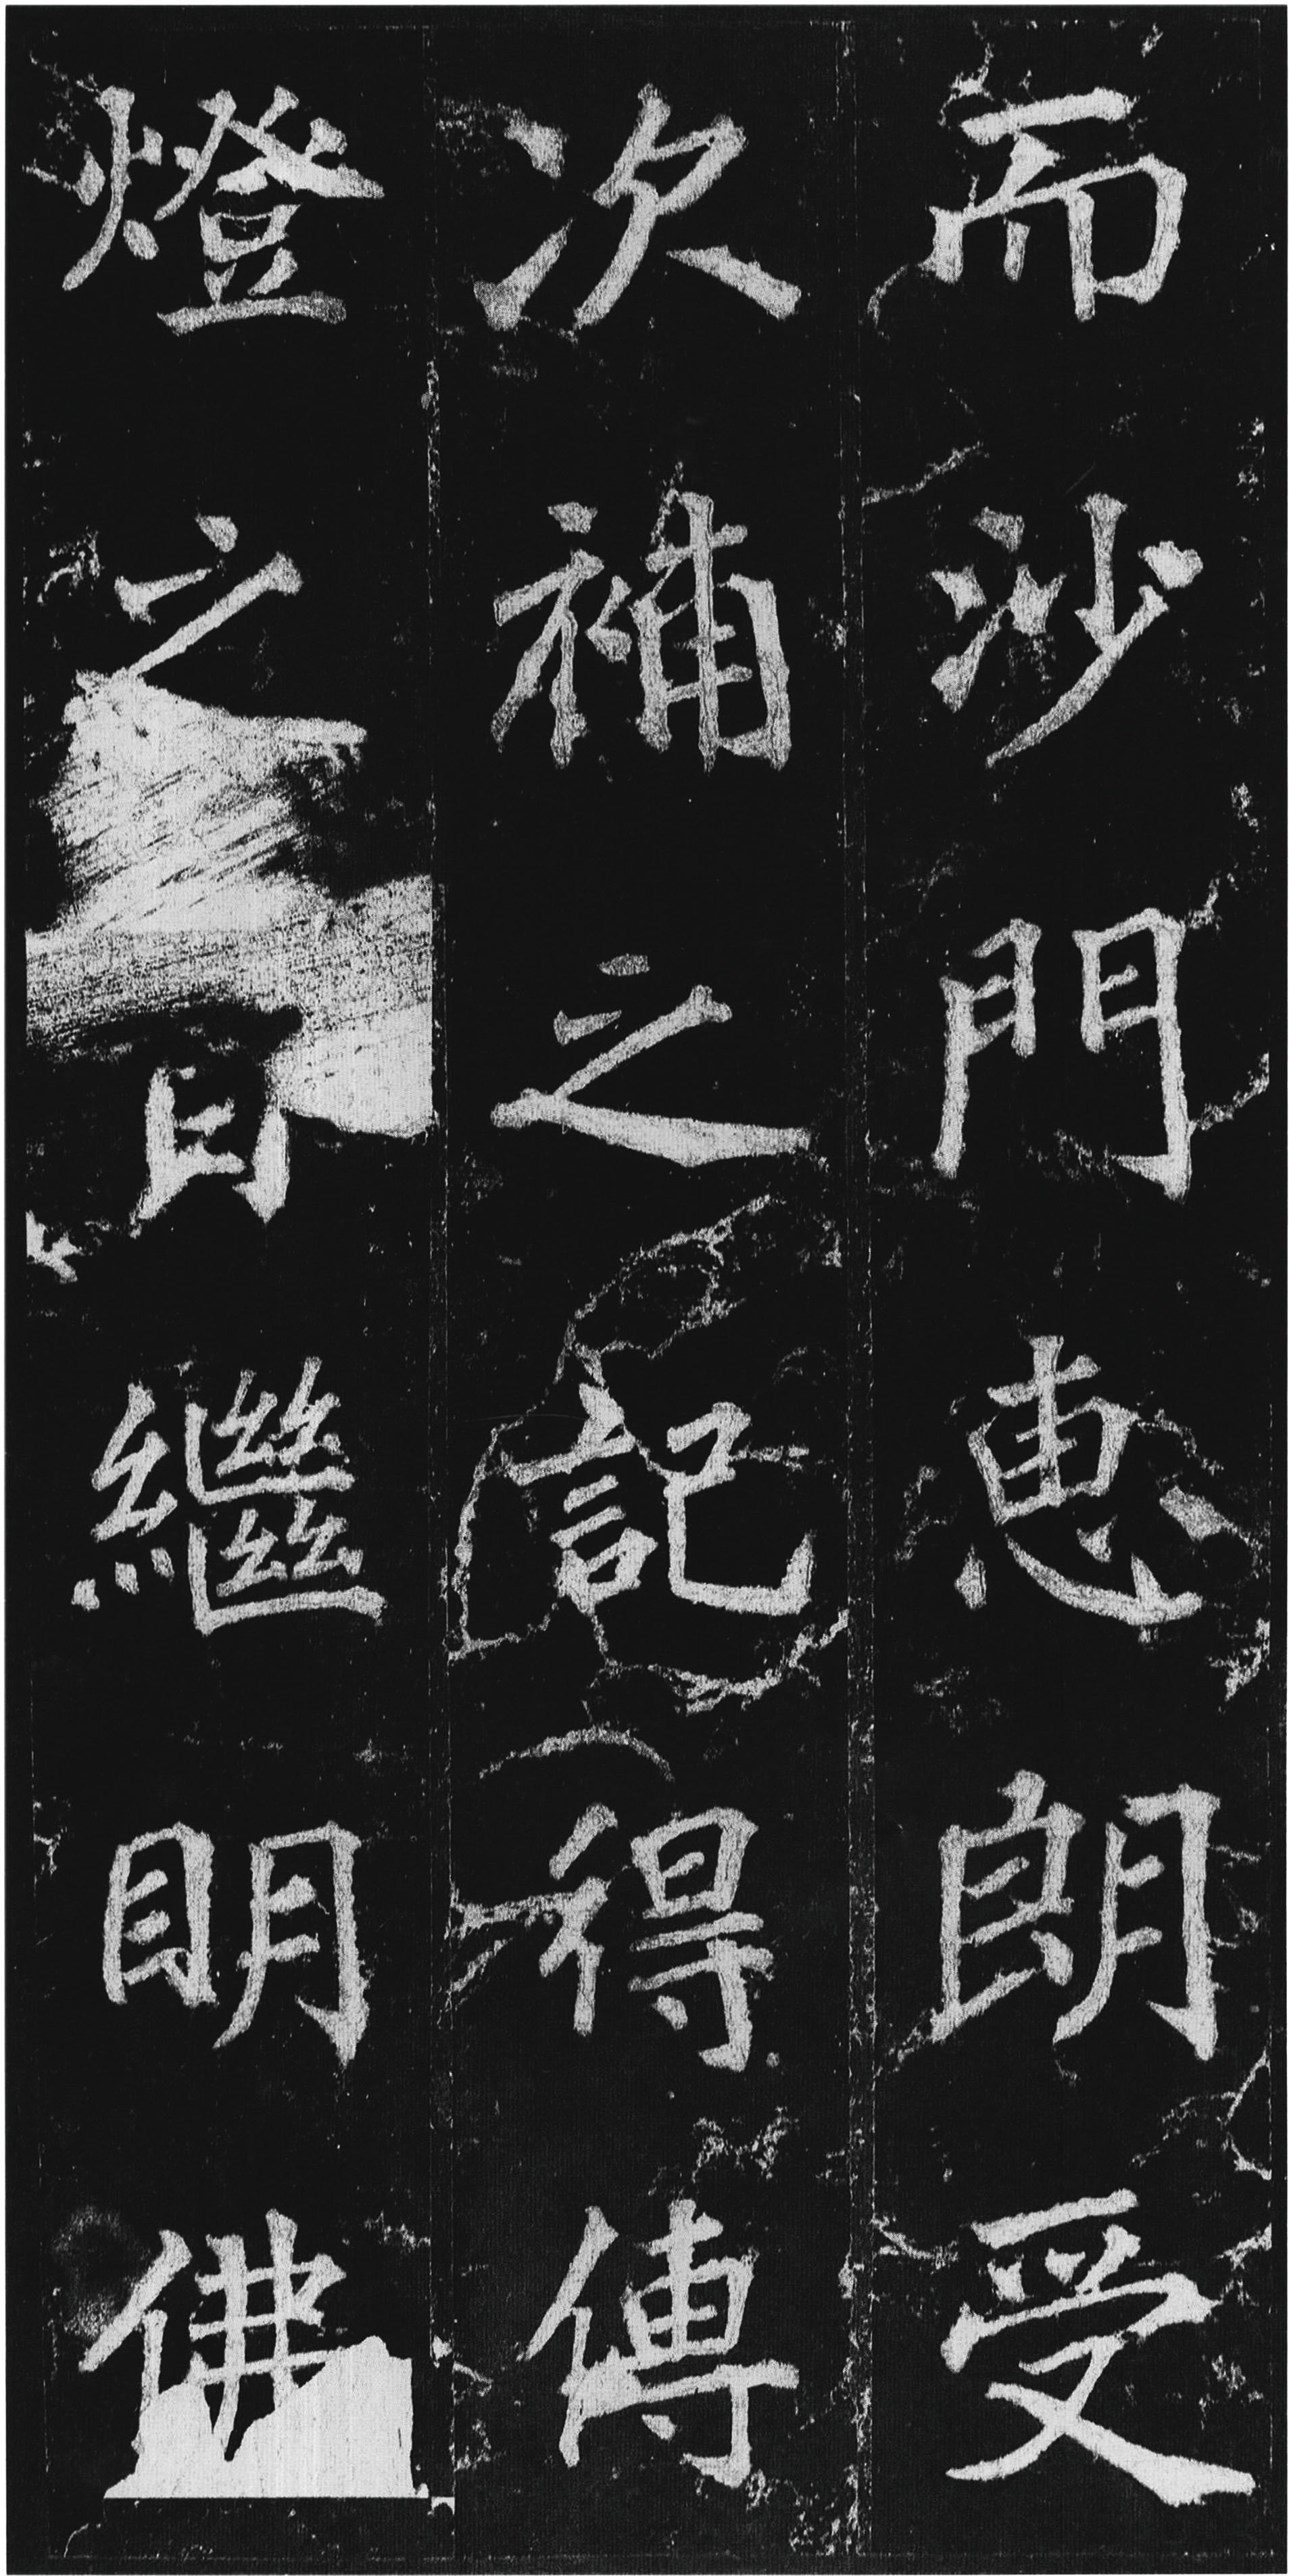 而沙門惠朗受
次補之記得傳
燈之繼明佛